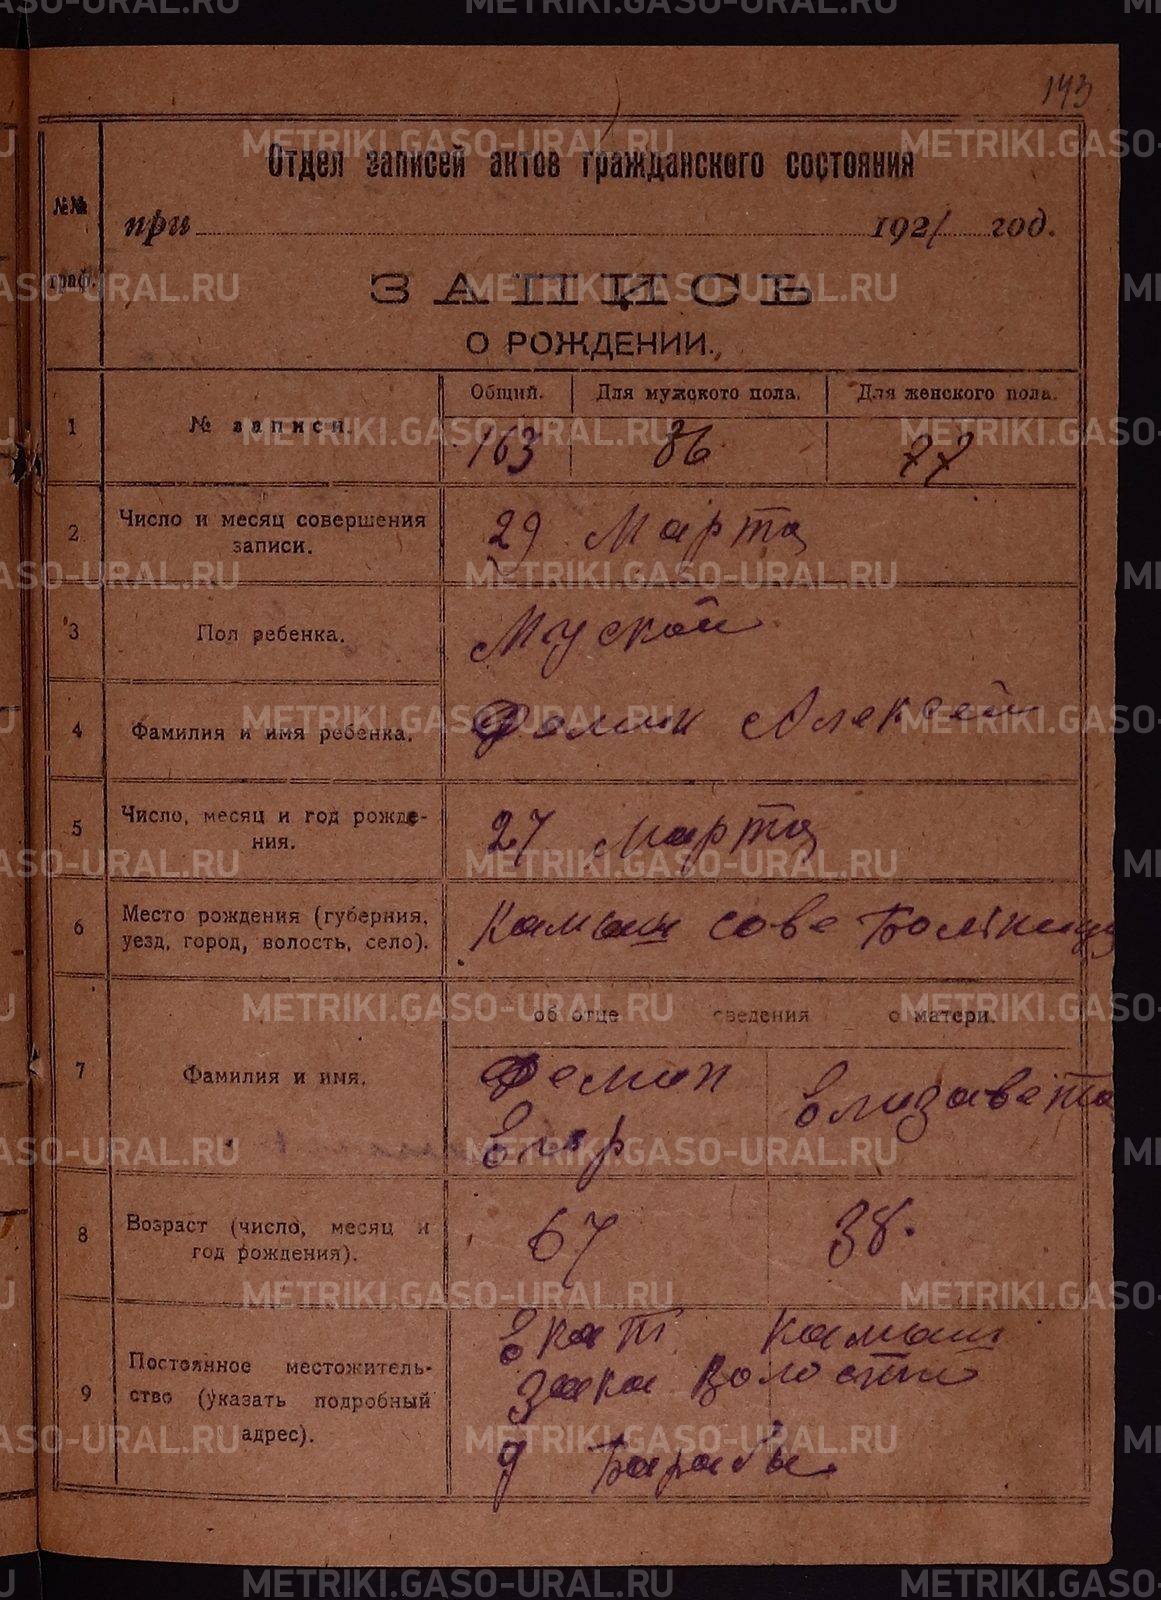 143
Отдел записей актов гражданского состояния
№№ граф.
при 1921 год.
ЗАПИСЬ
О РОЖДЕНИИ.
1 № записи. Общий. Для мужского пола. Для женского пола.
163 86 77
2 Число и месяц совершения записи. 29 Марта
3 Пол ребенка. Муской
4 Фамилия и имя ребенка. Фомин Алексей
5 Число, месяц и год рождения. 27 Марта
6 Место рождения (губерния, уезд, город, волость, село). Камыш сове
7 Фамилия и имя. об отце сведения о матери.
Фемин Елизавета
Егор
8 Возраст (число, месяц и год рождения). 67 38.
9 Постоянное местожительство (указать подробный адрес). Екат Камыш
волости
д Барабы
METRIKI.GASO-URAL.RU